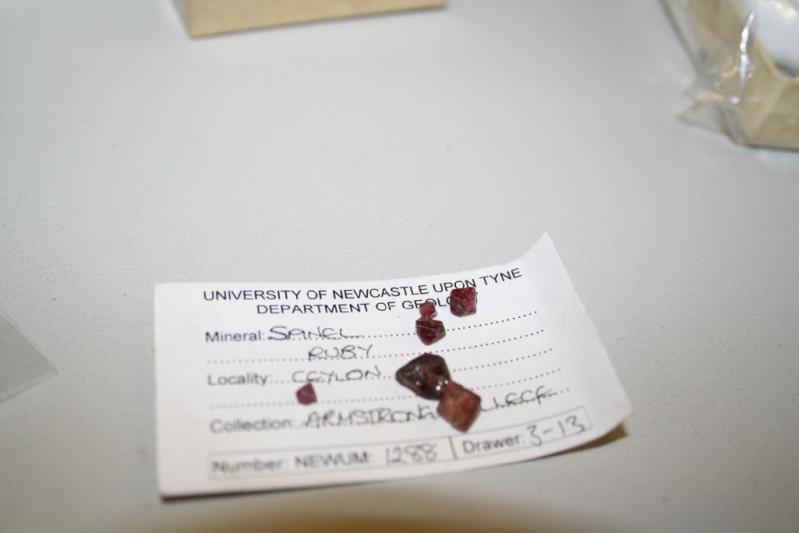 UNIVERSITY OF NEWCASTLE UPON TYNE
DEPARTMENT OF
Mineral: SPINEL
RUBY
Locality: CEYLON
Collection: ARMSTRONG
Number: NEWUM: 1288 Drawer: 3-13